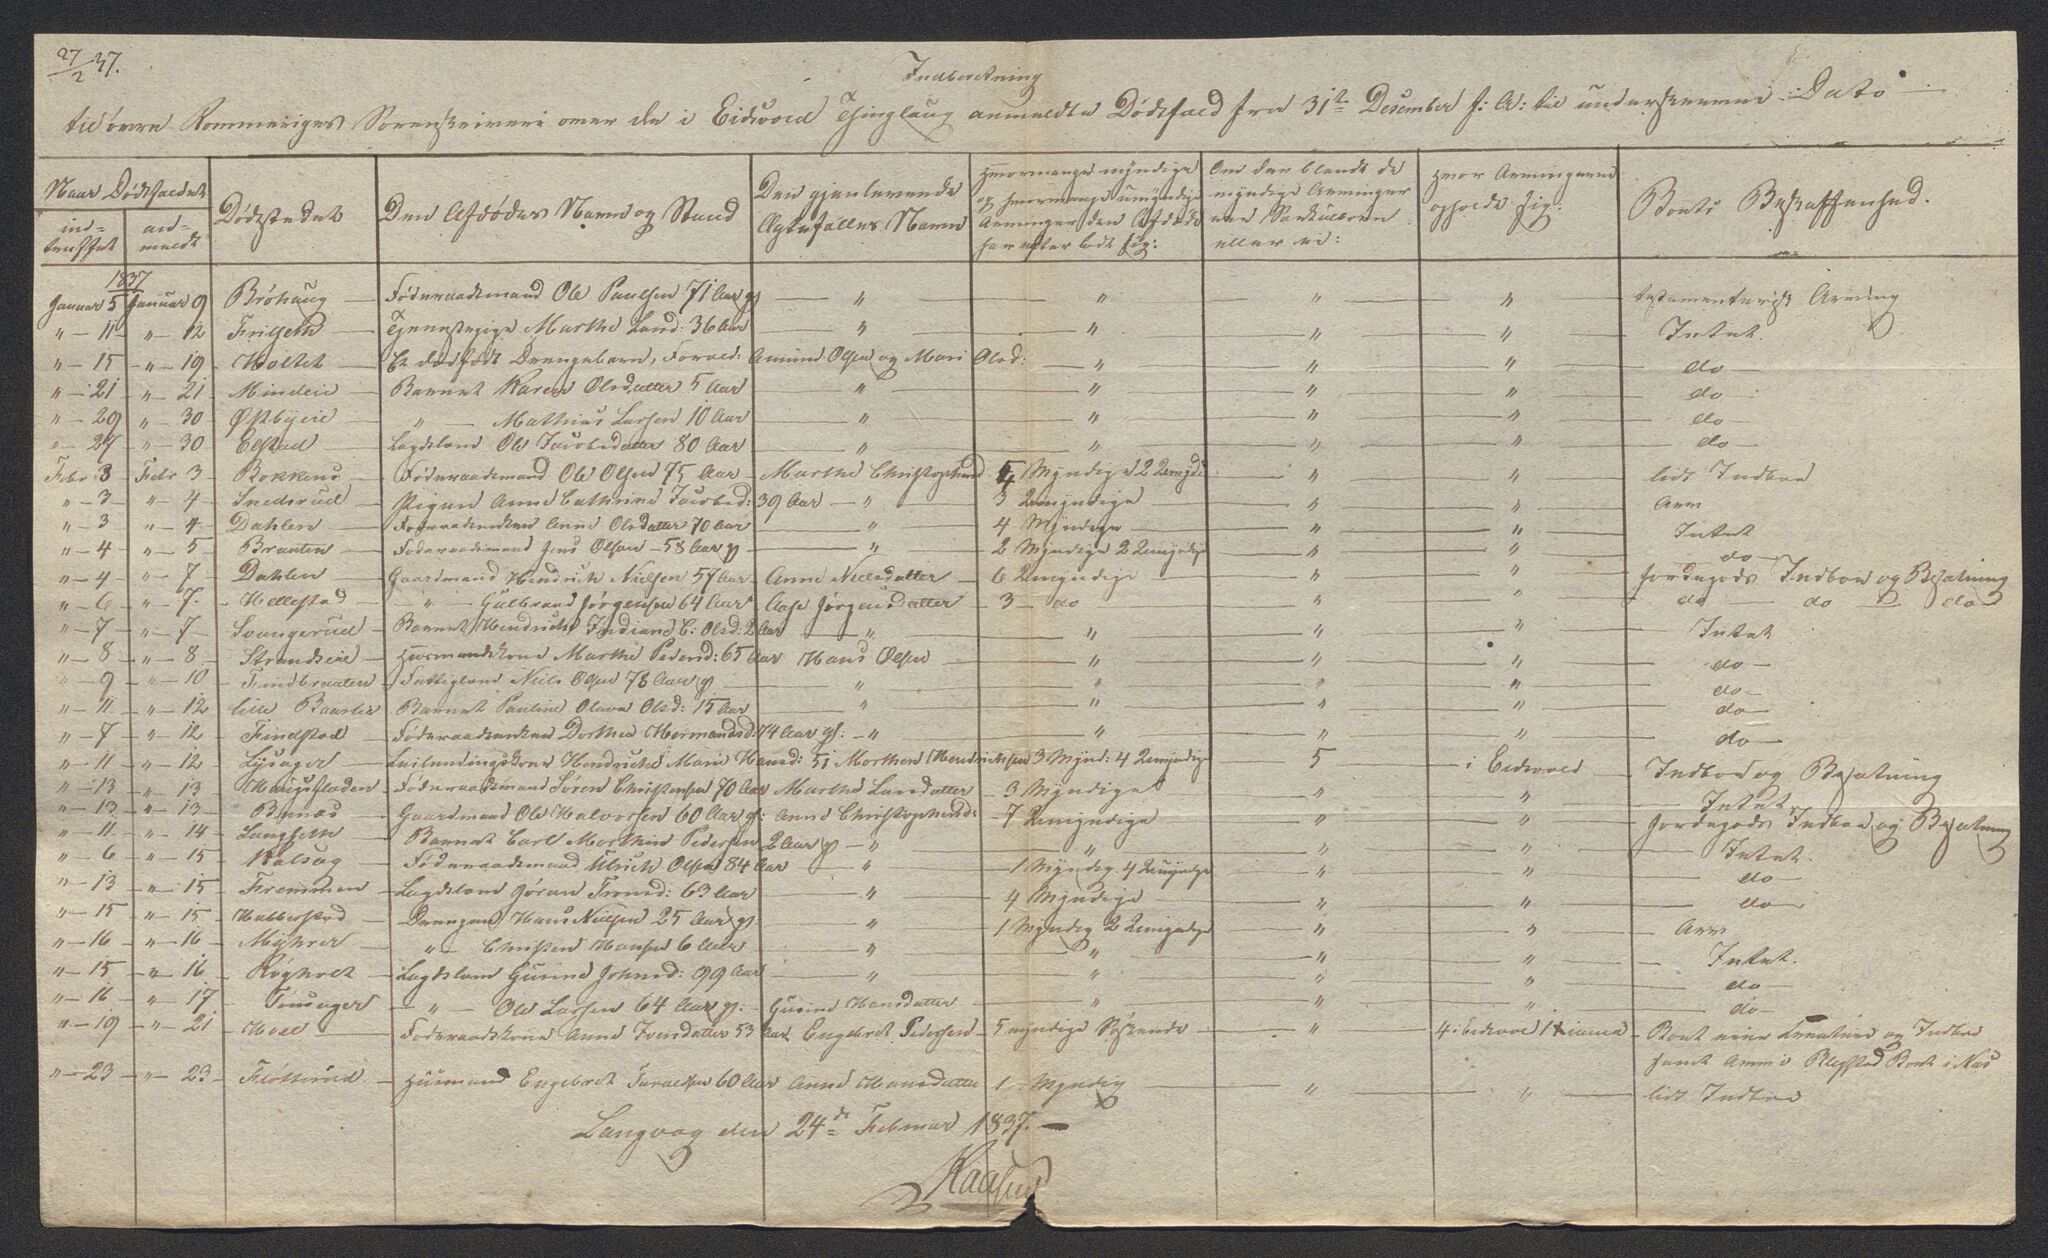 27/2 37.
Indberetning
til øvre Rommeriges Sorenskriveri over de i Eidsvold Thinglaug anmeldte Dødsfald fra 31te Desember f: A: til underskrevne Dato
Naar Dødsfaldet
ind- truffet
an- meldt
Dødsstedet
Den Afdødes Navn og Stand
Den gjenlevende Ægtefælles Navn
Hvormange myndige og hvormange umyndige Arvinger den Afdøde har efter ladt sig:
Om der blandt de myndige Arvinger ere Særkulborn eller ei:
Hvor Arvingerne opholde sig:
Boets Beskaffenhed.
1837
Januar 5 Januar 9 Brøhaug Føderaadsmand Ole Paulsen 71 Aar gl " " " " testamentarisk Arving
" 11 " 12 Tjenestepige Marthe Lasd: 36 Aar " " " " Intet.
" 15 " 19 Holtet Et dødfødt Drengebarn, Foræld: Amund Olsen og Mari Olsd: " " " do
" 21 " 21 Mindeie Barnet Karen Olsdatter 5 Aar " " " " do
" 29 " 30 Østbyeie " Mathias Larsen 10 Aar " " " " do
" 27 " 30 Lægdslem Ole Jacobsdatter 80 Aar " " " " do
Febr 3 Febr 3 Bokkens Føderaadsmand Ole Olsen 75 Aar Marthe Christophersd 4 Myndige 2 Umynd: " " lidt Indboe
" 3 " 4 Snedsrud Pigen Anne Cathrine Jacobsd: 39 Aar " 3 Umyndige " " Arv
" 3 " 4 Dahlen Føderaadsenken Anne Olsdatter 70 Aar " 4 Myndige " " Intet
" 4 " 5 Braaten Føderaadsmand Jens Olsen 58 Aar gl " 2 Myndige 2 Umyndige " " do
" 4 " 7 Dahlen Gaardmand Hendrich Nielsen 57 Aar Anne Nielsdatter 6 Umyndige " " Jordegods Indboe og Besætning
" 6 " 7. Hellestad " Gulbrand Jørgensen 64 Aar Aase Jørgensdatter 3 do " " do do do
" 7 " 7 Svangerud Barnet Hendriche Indiane C: Olsd: 2 Aar " " " " Intet
" 8 " 8 Strandseie Huusmandskone Marthe Pedersd: 65 Aar Hans Olsen " " " do
" 9 " 10 Findbraaten Fattiglem Niels Olsen 78 Aar gl " " " " do
" 11 " 12 lille Barnet Pauline Olava Olsd: 15 Aar " " " " do
" 7 " 12 Findstad Føderaadsenken Dorthea Hermandsd: 74 Aar gl: " " " " do
" 11 " 12 Lysager Leilendingskone Hendriche Marie Hansd: 51 Morthen Hendrichsen 3 Mynd: 4 Umyndige 5 i Eidsvold Indboe og Besætning
" 13 " 13 Føderaadsmand Søren Christensen 70 Aar Marthe Larsdatter 3 Myndige " " Intet
" 13 " 13 Bønas Gaardmand Ole Halvorsen 60 Aar gl: Anne Christophersd: 7 Umyndige " " Jordegods Indboe og Besætning
" 11 " 14 Langseth Barnet Carl Morthin Pedersen 2 Aar gl " " " " Intet.
" 6 " 15 Kalsag Føderaadsmand Ulrich Olsen 84 Aar " 1 Myndig 4 Umyndge " " do
" 13 " 15 Fremmen Lægdslem Gøran Tronsd: 63 Aar " 4 Myndige " " do
" 15 " 15 Habberstad Drengen Hans Nielsen 25 Aar gl " 1 Myndig 2 Umyndige " " Arv
" 16 " 16 Myhrer " Christen Hansen 6 Aar " " " " Intet.
" 15 " 16 Røgholt Lægdslem Gunne Johnsd: 99 Aar " " " " do
" 16 " 17 " Ole Larsen 64 Aar gl: Gurine Hansdatter " " " do
" 19 " 21 Føderaadskone Anne Iversdatter 53 Aar Engebret Pedersen 5 myndige Søskende " 4 i Eidsvold 1 Boet eier Kreature og Indboe
samt Arv i Boet i Næs
" 23 " 23 Huusmand Engebret Taraldsen 60 Aar Anne Hansdatter 1 Myndig " " lidt Indboe
Langvog den 24de Februar 1837.